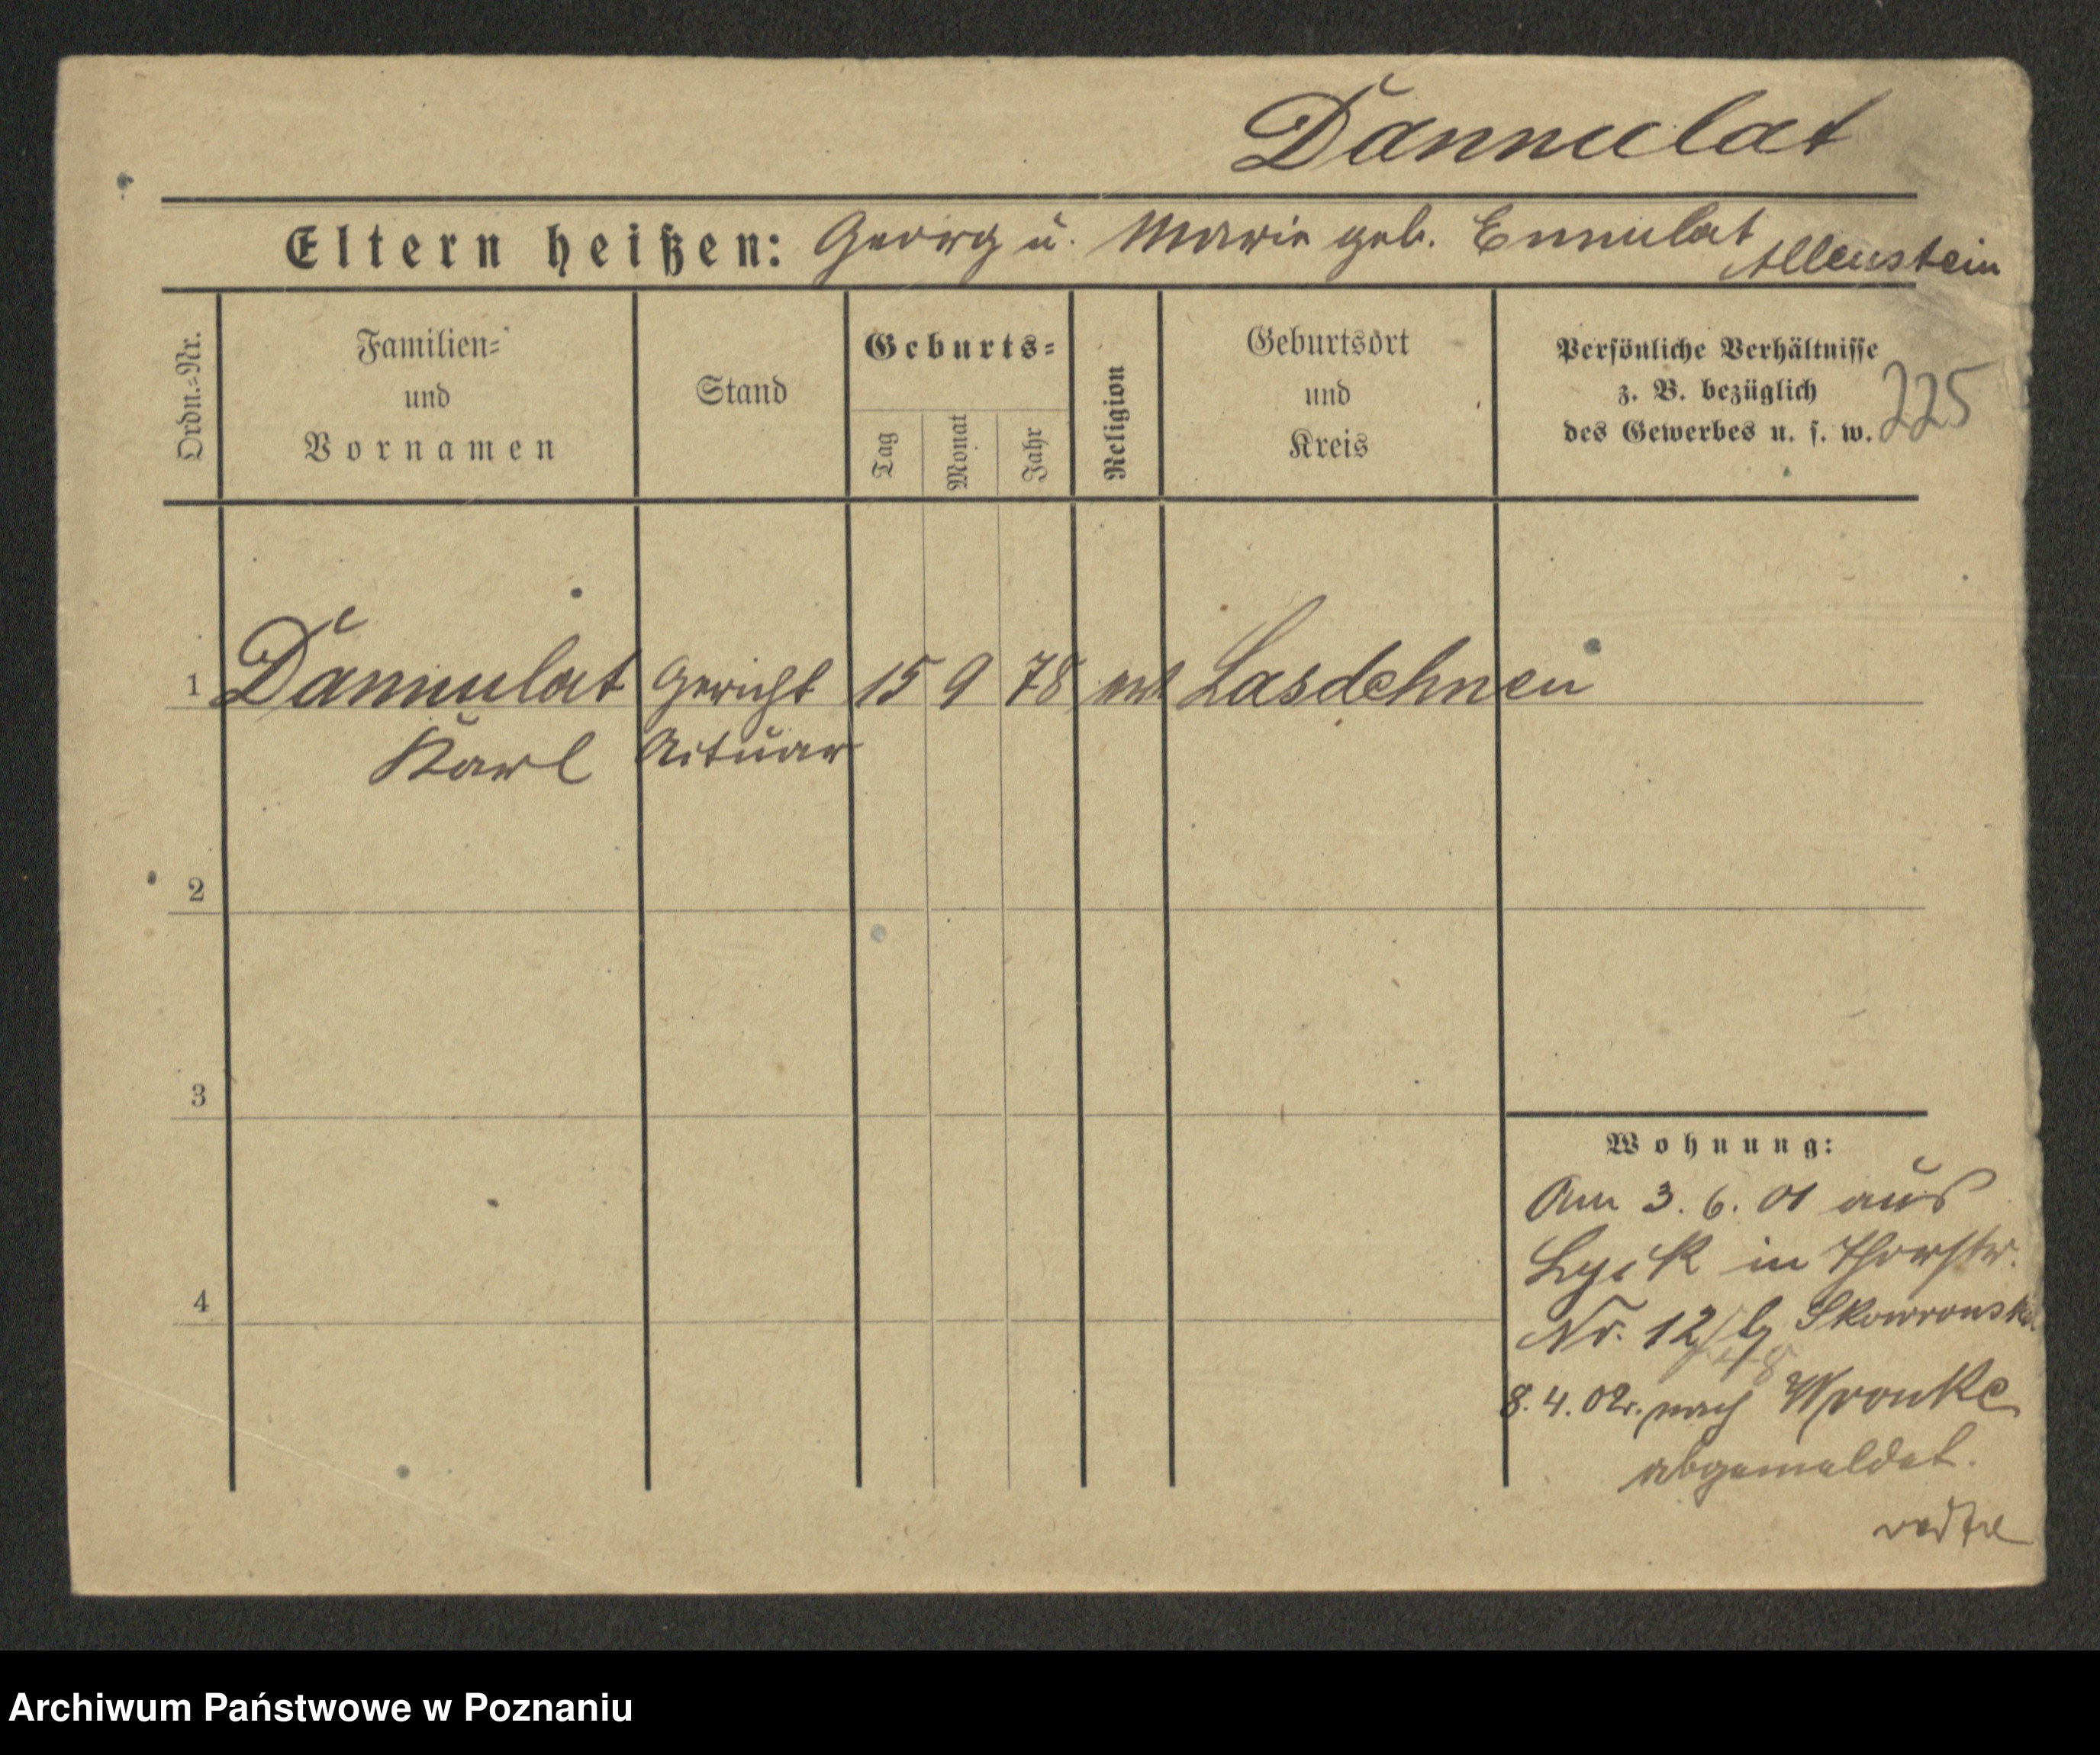 Dannulat
Eltern heißen: Georg u. Marie geb. Ennulat Allenstein
Ordn.-Nr.
Familien-
und
Vornamen
Stand
Geburts-
Tag
Monat
Jahr
Religion
Geburtsort
und
Kreis
Persönliche Verhältnisse
z. B. bezüglich
des Gewerbes u. s. w.
225
1 Dannulat Gericht 15 9 78 Lasdehnen
Karl Actuar
2
3
4
Wohnung:
Am 3. 6. 01 aus
Lyck in Thorstr.
Nr. 12 Skowronska
8. 4. 02 nach Wronke
abgemeldet.
Archiwum Państwowe w Poznaniu